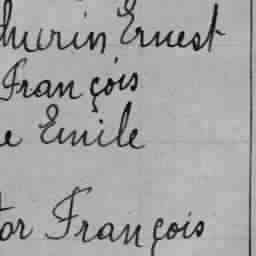 thurin Ernest
François
e Emile
tor François